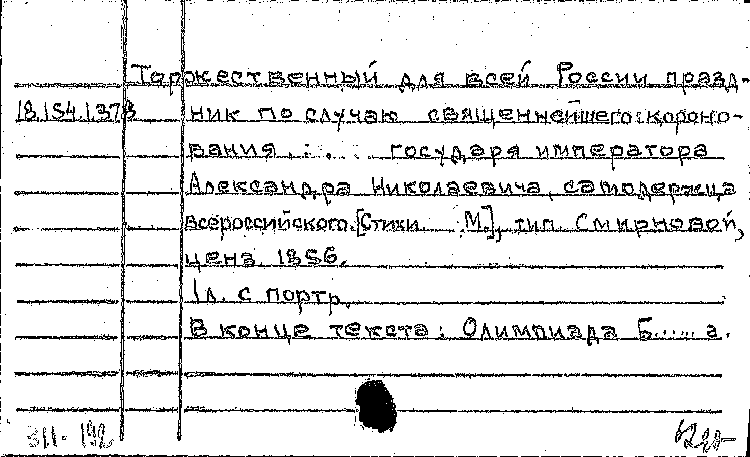 Торжественный для всей России празд-
18.154.1.378 ник по случаю священнейшего корoно-
вания . . . . государя императора
Александра Николаевича, самодержца
всероссийского. [Стихи М.], тип. Смирновой,
ценз. 1856.
1 л. с портр.
В конце текста: Олимпиада Б...... а.
311-192